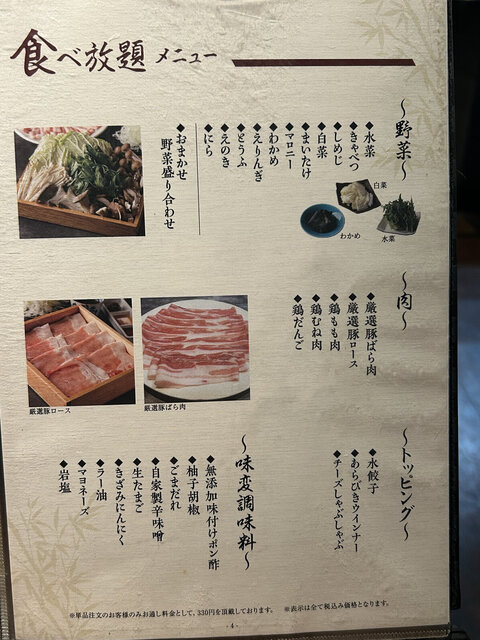 食べ放題 メニュー
～野菜～
◆水菜
◆きゃべつ
◆しめじ
◆白菜
◆まいたけ
◆マロニー
◆わかめ
◆えりんぎ
◆とうふ
◆えのき
◆にら
◆おまかせ
野菜盛り合わせ
白菜
わかめ
水菜
～肉～
◆厳選豚ばら肉
◆厳選豚ロース
◆鶏もも肉
◆鶏むね肉
◆鶏だんご
厳選豚ロース
厳選豚ばら肉
～トッピング～
◆水餃子
◆あらびきウインナー
◆チーズしゃぶしゃぶ
～味変調味料～
◆無添加味付けポン酢
◆柚子胡椒
◆ごまだれ
◆自家製辛味噌
◆生たまご
◆きざみにんにく
◆ラー油
◆マヨネーズ
◆岩塩
※単品注文のお客様のみお通し料金として、330円を頂戴しております。 ※表示は全て税込み価格となります。
- 4 -